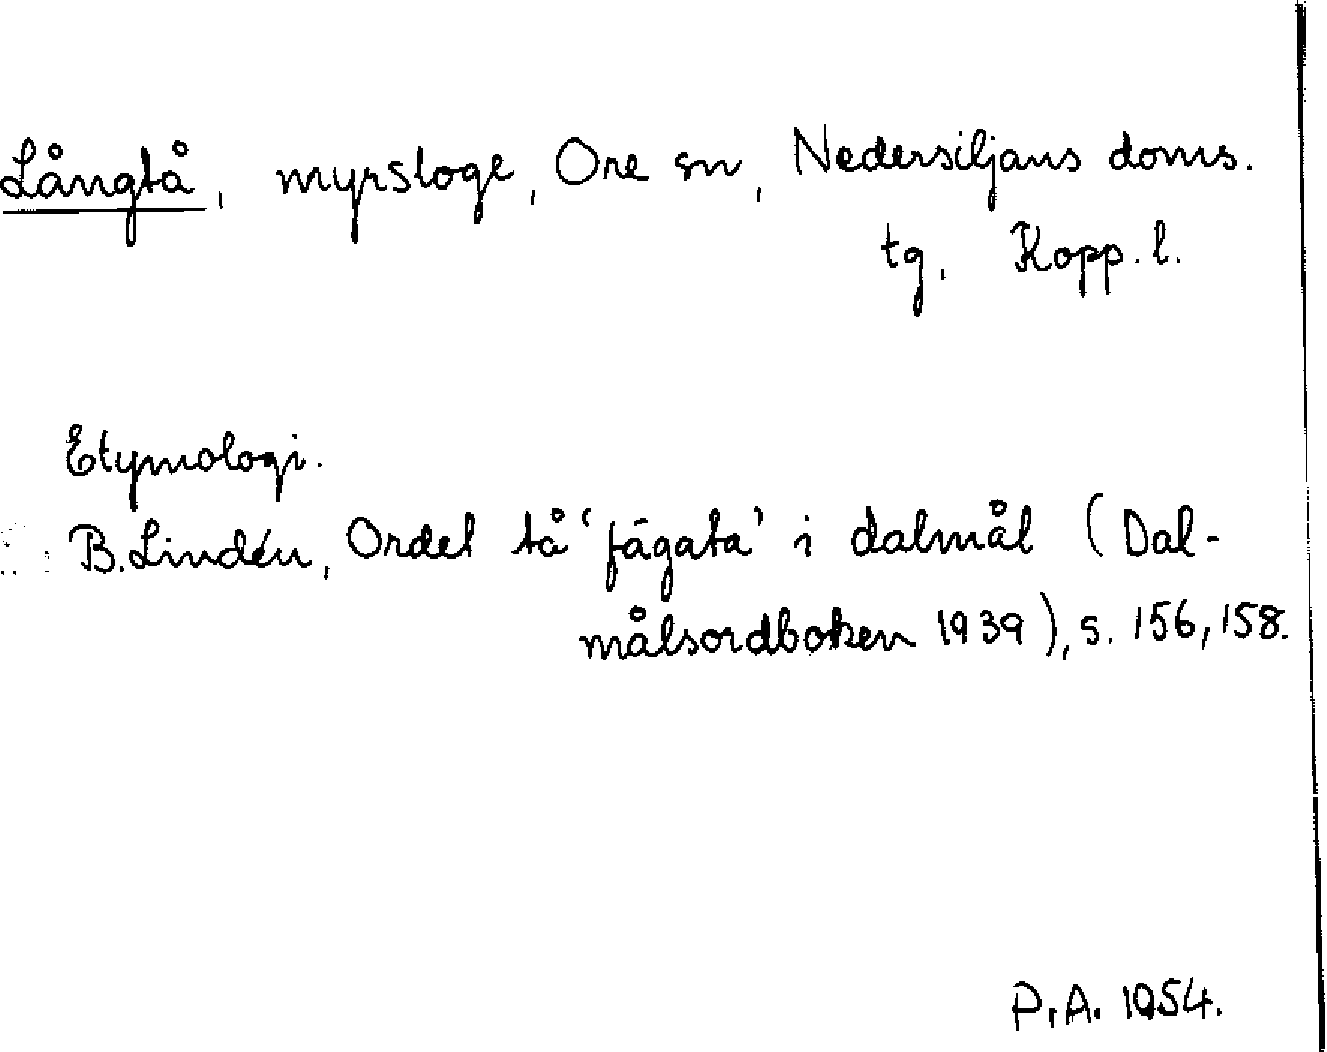 Långtå, myrsloge, Ore sn, Nedersiljans doms.
tg, Kopp. l.
Etymologi.
B. Lindén, Ordet tå 'fägata' i dalmål (Dal-
målsordboken 1939), s. 156, 158.
P.A. 1954.